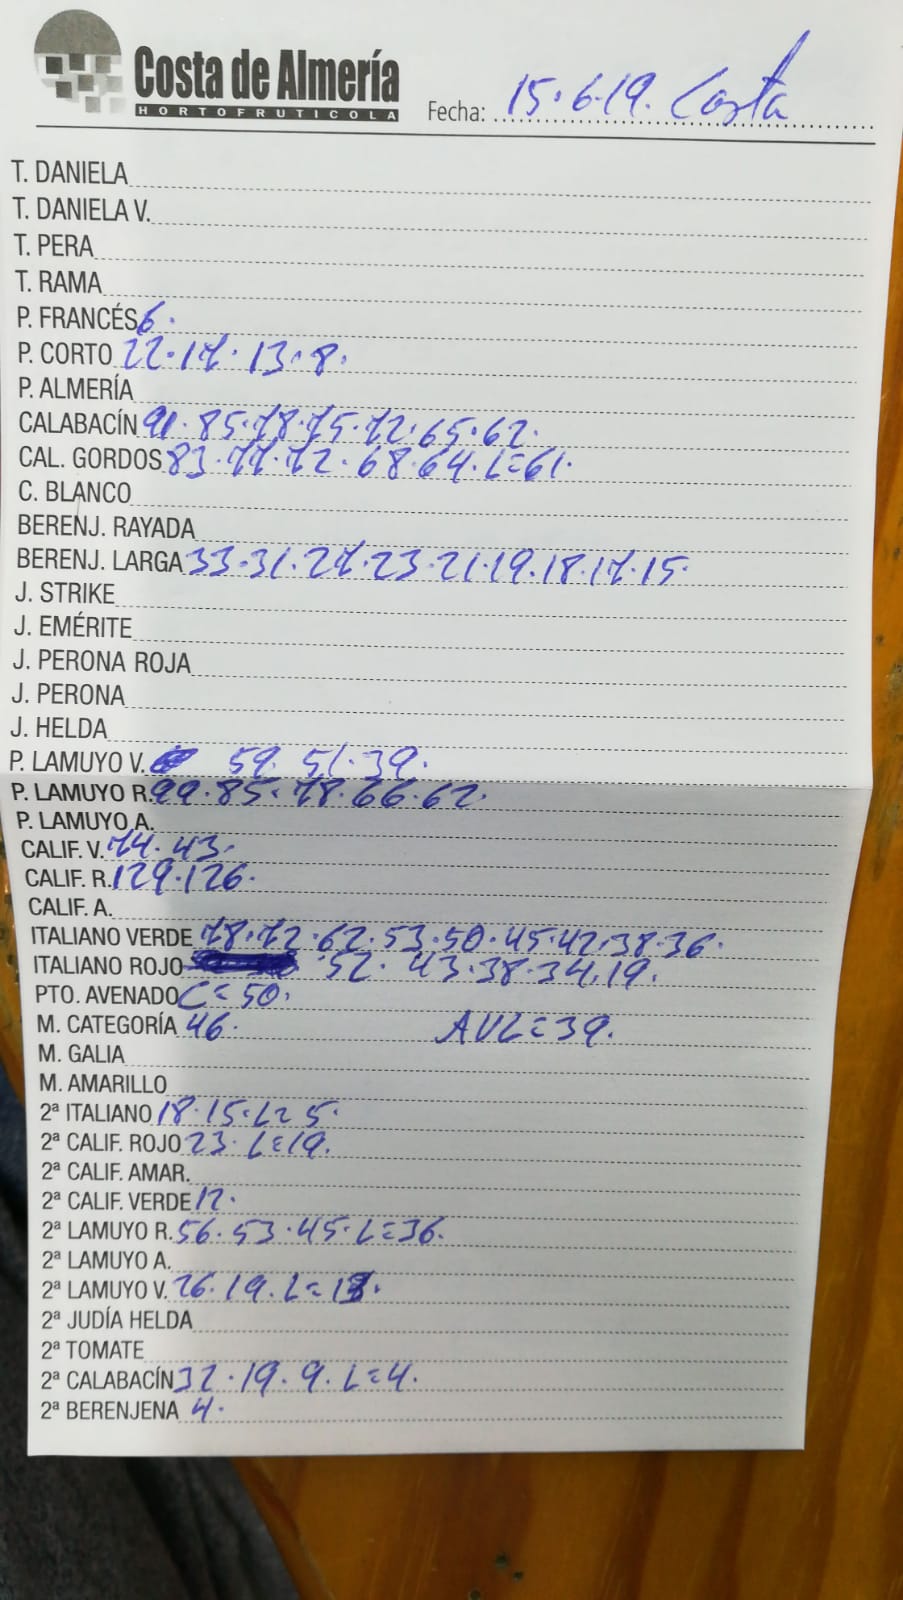 Costa de Almería
HORTOFRUTICOLA
Fecha: 15.6.19. Costa
T. DANIELA
T. DANIELA V.
T. PERA
T. RAMA
P. FRANCÉS 6.
P. CORTO 22.17.13.8.
P. ALMERÍA
CALABACÍN 91.85.78.75.72.65.62.
CAL. GORDOS 83.77.72.68.64.L=61.
C. BLANCO
BERENJ. RAYADA
BERENJ. LARGA 33.31.27.23.21.19.18.17.15.
J. STRIKE
J. EMÉRITE
J. PERONA ROJA
J. PERONA
J. HELDA
P. LAMUYO V. 59.51.39.
P. LAMUYO R. 99.85.78.66.62.
P. LAMUYO A.
CALIF. V. 74.43.
CALIF. R. 129.126.
CALIF. A.
ITALIANO VERDE 78.72.62.53.50.45.42.38.36.
ITALIANO ROJO 52.43.38.34.19.
PTO. AVENADO C=50.
M. CATEGORÍA 46. AVL=39.
M. GALIA
M. AMARILLO
2ª ITALIANO 18.15.L=5.
2ª CALIF. ROJO 23.L=19.
2ª CALIF. AMAR.
2ª CALIF. VERDE 12.
2ª LAMUYO R. 56.53.45.L=36.
2ª LAMUYO A.
2ª LAMUYO V. 26.19.L=
2ª JUDÍA HELDA
2ª TOMATE
2ª CALABACÍN 32.19.9.L=4.
2ª BERENJENA 4.